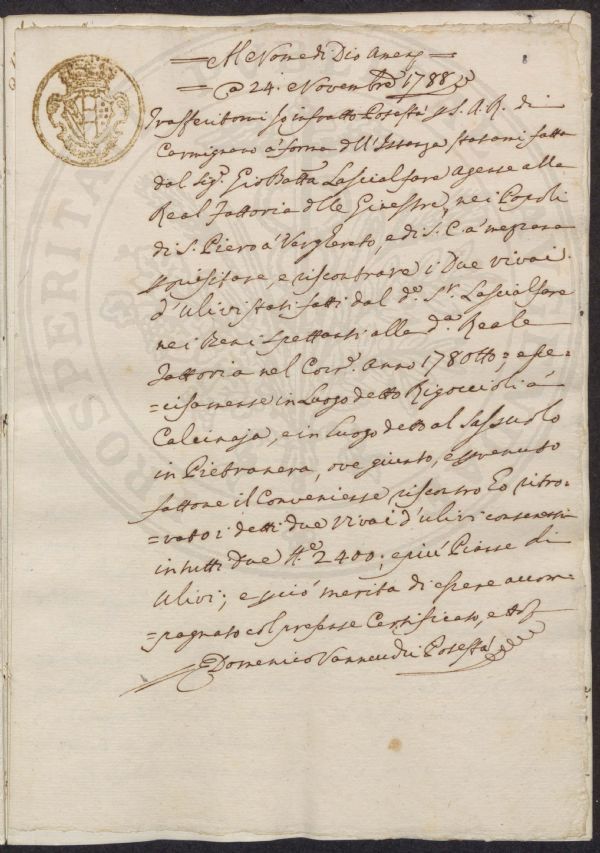 = Al Nome di Dio Amen =
= a 24. Novembre 1788 =
Trasferitomi Io infratto Potestà p S. A. R. di
Carmignano a forma dell'Istanza statami fatta
dal Sig.r Gio Batta Lascialfare Agente alla
Real Fattoria delle Ginestre, nei Popoli
di S. Piero à Verghereto, e di S. C. à
e riscontrare i Due vivai
d'Ulivi stati fatti dal d.o S.r Lascialfare
nei Beni spettanti alla d.a Reale
Fattoria nel Corr.e Anno 1780tto; e pre=
=cisamente in Luogo detto Rigoccioli à
Calcinaja, e in Luogo detto al Sassuolo
in Pietranera, ove giunto, e
fattone il Conveniente riscontro Ho ritro=
=vato i detti due Vivai d'ulivi consenenti
in tutti due N.o 2400; e più Piante di
Ulivi; e p ciò merita di essere accom=
=pagnato col presente Certificato,
Domenico Vannucchi Potestà